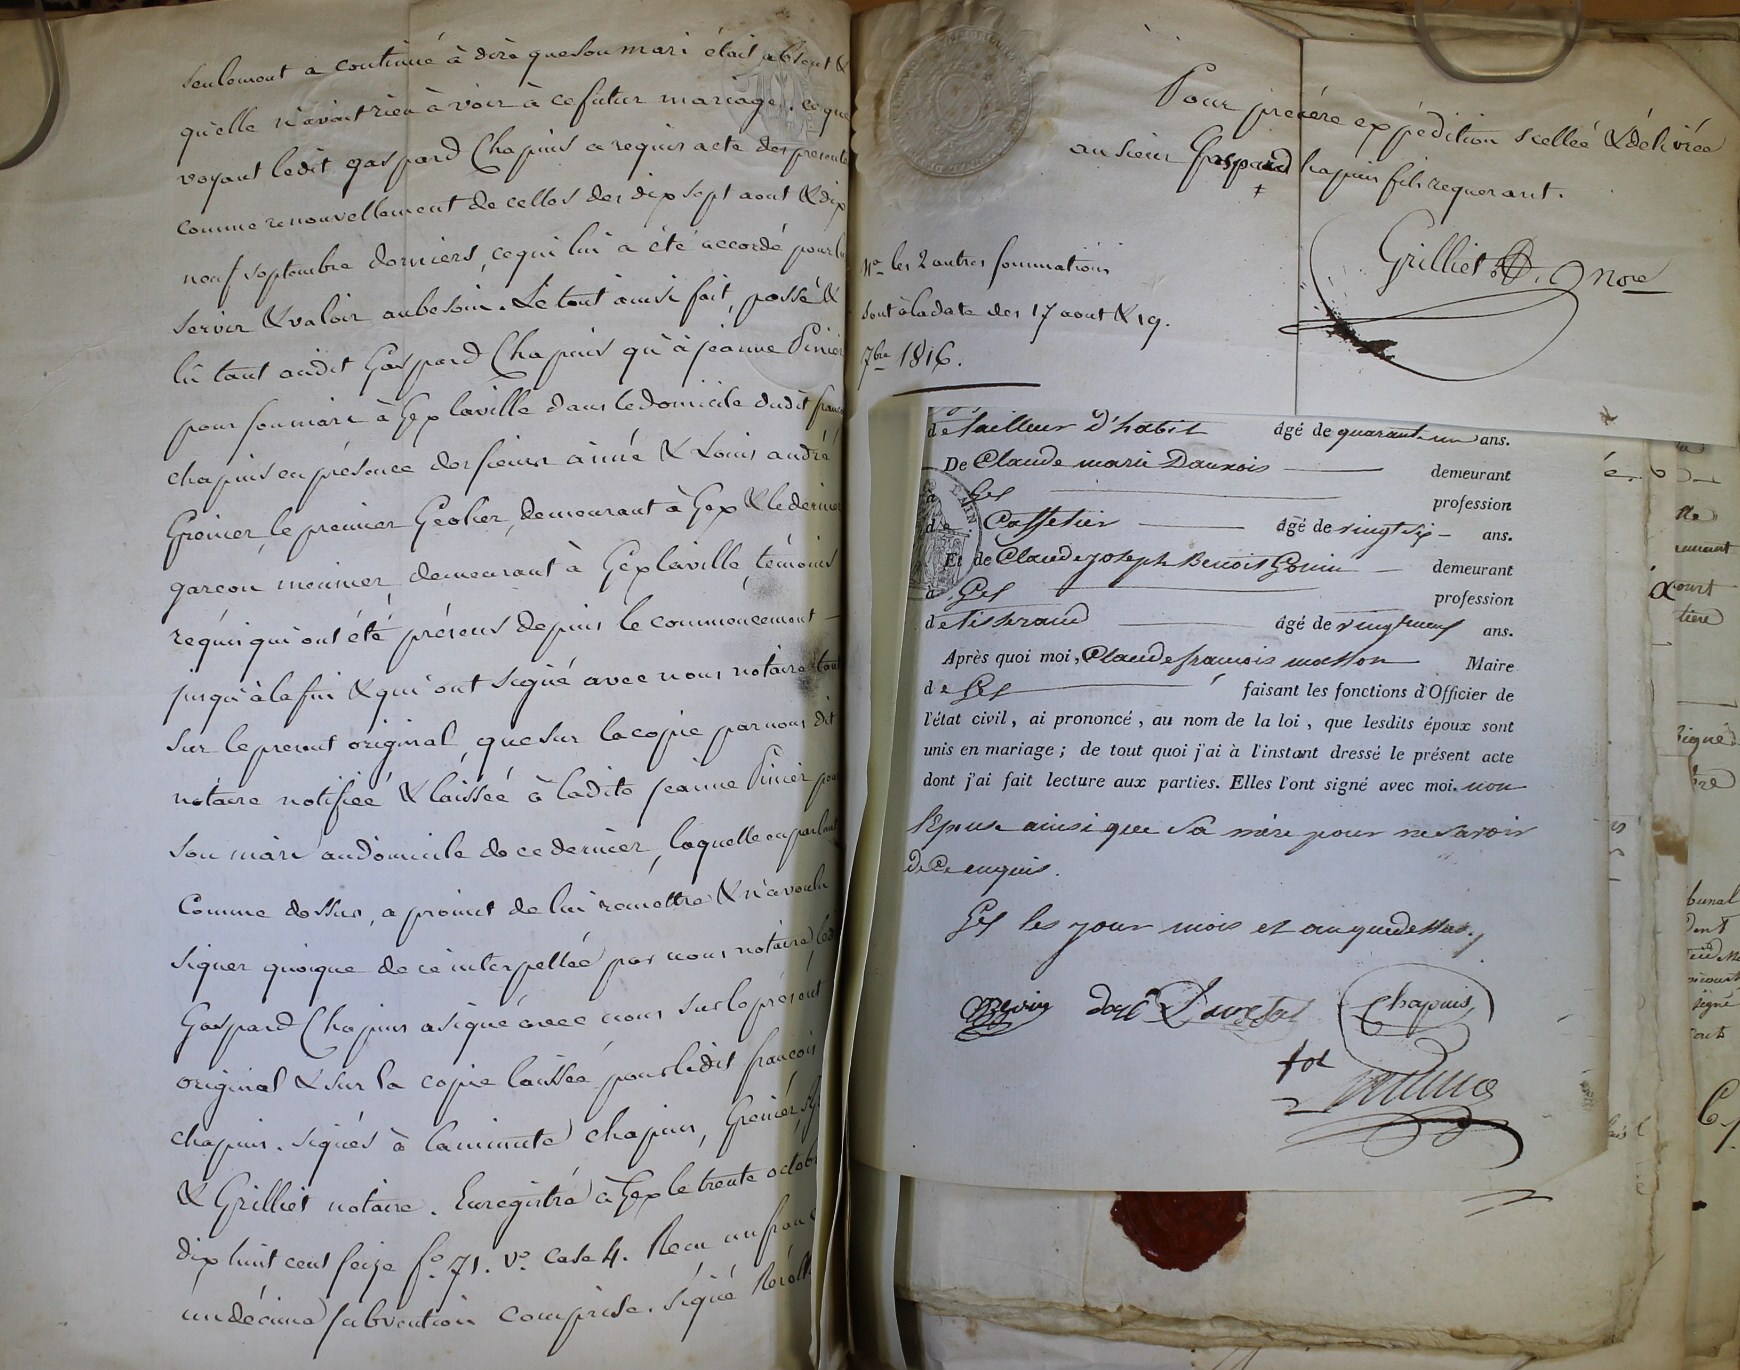 seulement a continué à dire que son mari était absent &
qu'elle n'avait rien à voir à ce futur mariage. ce que
voyant ledit gaspard Chapuis a requis acte des presente
comme renouvellement de celles des dix sept aout & dix
neuf septembre derniers, ce qui lui a été accordé pour lui
servir & valoir au besoin. Le tout ainsi fait, passé &
lû tant audit Gaspard Chapuis qu'à jeanne Pinier
pour son mari à Gex la ville dans le domicile dudit franco
chapuis en présence des sieurs aimé & Louis andré
Grenier, le premier Geolier, demeurant à Gex & le dernier
garçon meunier, demeurant à Gex laville, témoins
réquis qui ont été présens depuis le commencement –
jusqu'à la fin & qui ont signé avec nous notaire tant
sur le present original, que sur la copie par nous dit
notaire notifiée & laissée à ladite jeanne Pinier pour
son mari au domicile de ce dernier, laquelle en parlant
Comme dessus, a promit de lui remettre & n'a voulu
signer quoique de ce interpellée par nous notaire, led
Gaspard Chapuis a signé avec nous sur le présent
original & sur la copie laissée pour ledit francois
chapuis. signés à la minute chapuis, Grenier,
& Grilliet notaire. Enregistré à Gex le trente octob
dix huit cent seize f.o 71. v.o Case 4. Recu un franc
un décime subvention comprise. signé
Pour premère expédition scelleé & délivrée
au sieur Gaspard Chapuis fils requerant.
Grilliet Nore
Na les 2 autres sommations
sont à la date des 17 aout & 19.
7bre 1816.
de tailleur d'habit âgé de quarante un ans.
De Claude marie Dauxois demeurant
à Gex profession
de Caffetier âgé de vingt six – ans.
Et de Claude joseph Benoit Gouin demeurant
à Gex profession
de tisserand âgé de vingt neuf ans.
Après quoi moi, Claude francois masson Maire
de Gex faisant les fonctions d'Officier de
l'état civil, ai prononcé, au nom de la loi, que lesdits époux sont
unis en mariage; de tout quoi j'ai à l'instant dressé le présent acte
dont j'ai fait lecture aux parties. Elles l'ont signé avec moi. non
l'épouse ainsi que sa mère pour ne savoir
de ce enquis.
Gex les jour mois et an que dessus.
Chapuis